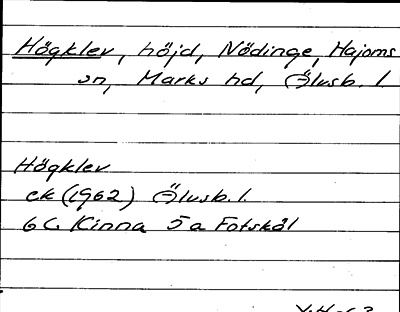 Högklev, höjd, Nödinge, Hajoms
sn, Marks hd, Älvsb. l.
Högklev
ek (1962) Älvsb. l.
6 C Kinna 5a Fotskäl